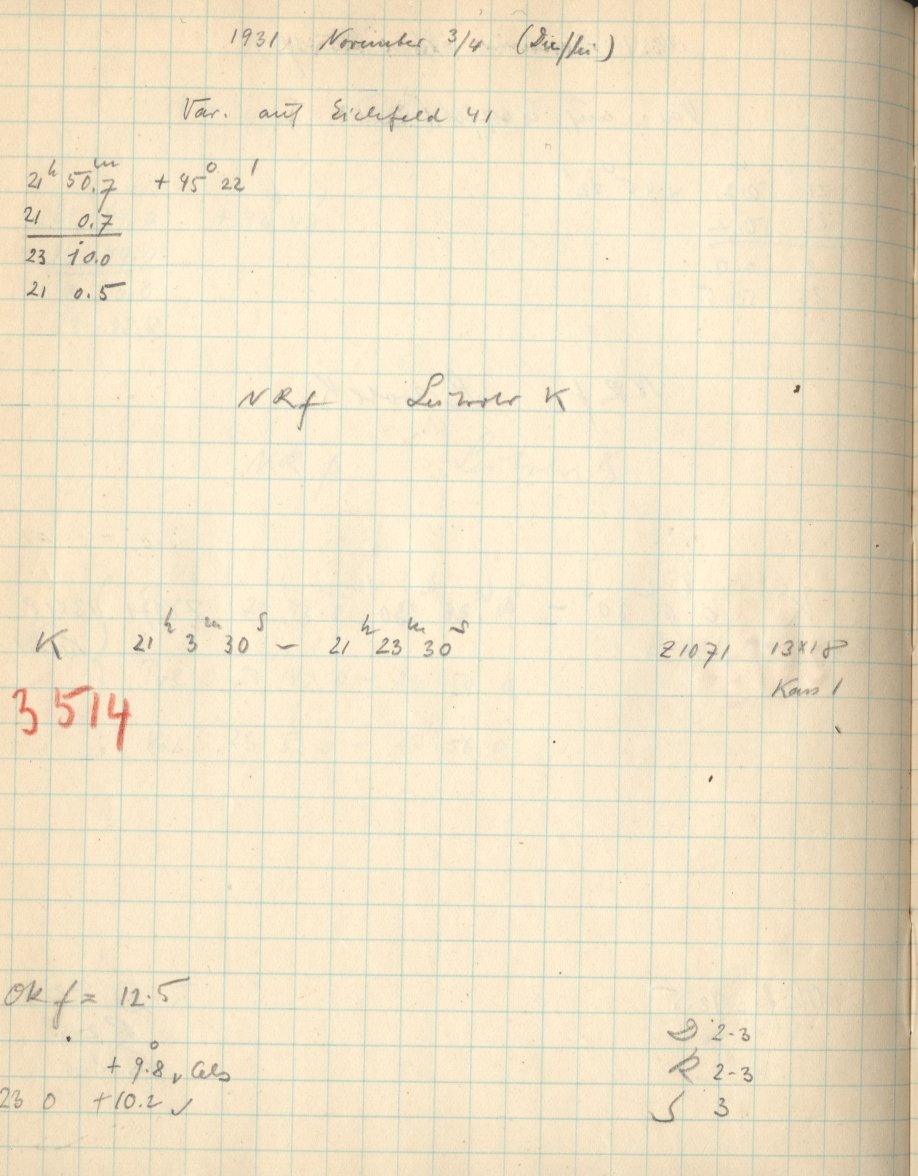 1931 November 3/4 (Die/Mi)
Var. auf Eichfeld 41
21h 50.7m + 45° 22'
21 0.7
23 10.0
21 0.5
NRf K
K 21h 3m 30s – 21h 23m 30s Z1071 13×18
Kass 1
3514
Ok f = 12.5
D 2-3
+ 9.8° Cels
R 2-3
23 0 +10.2 ✓
S 3